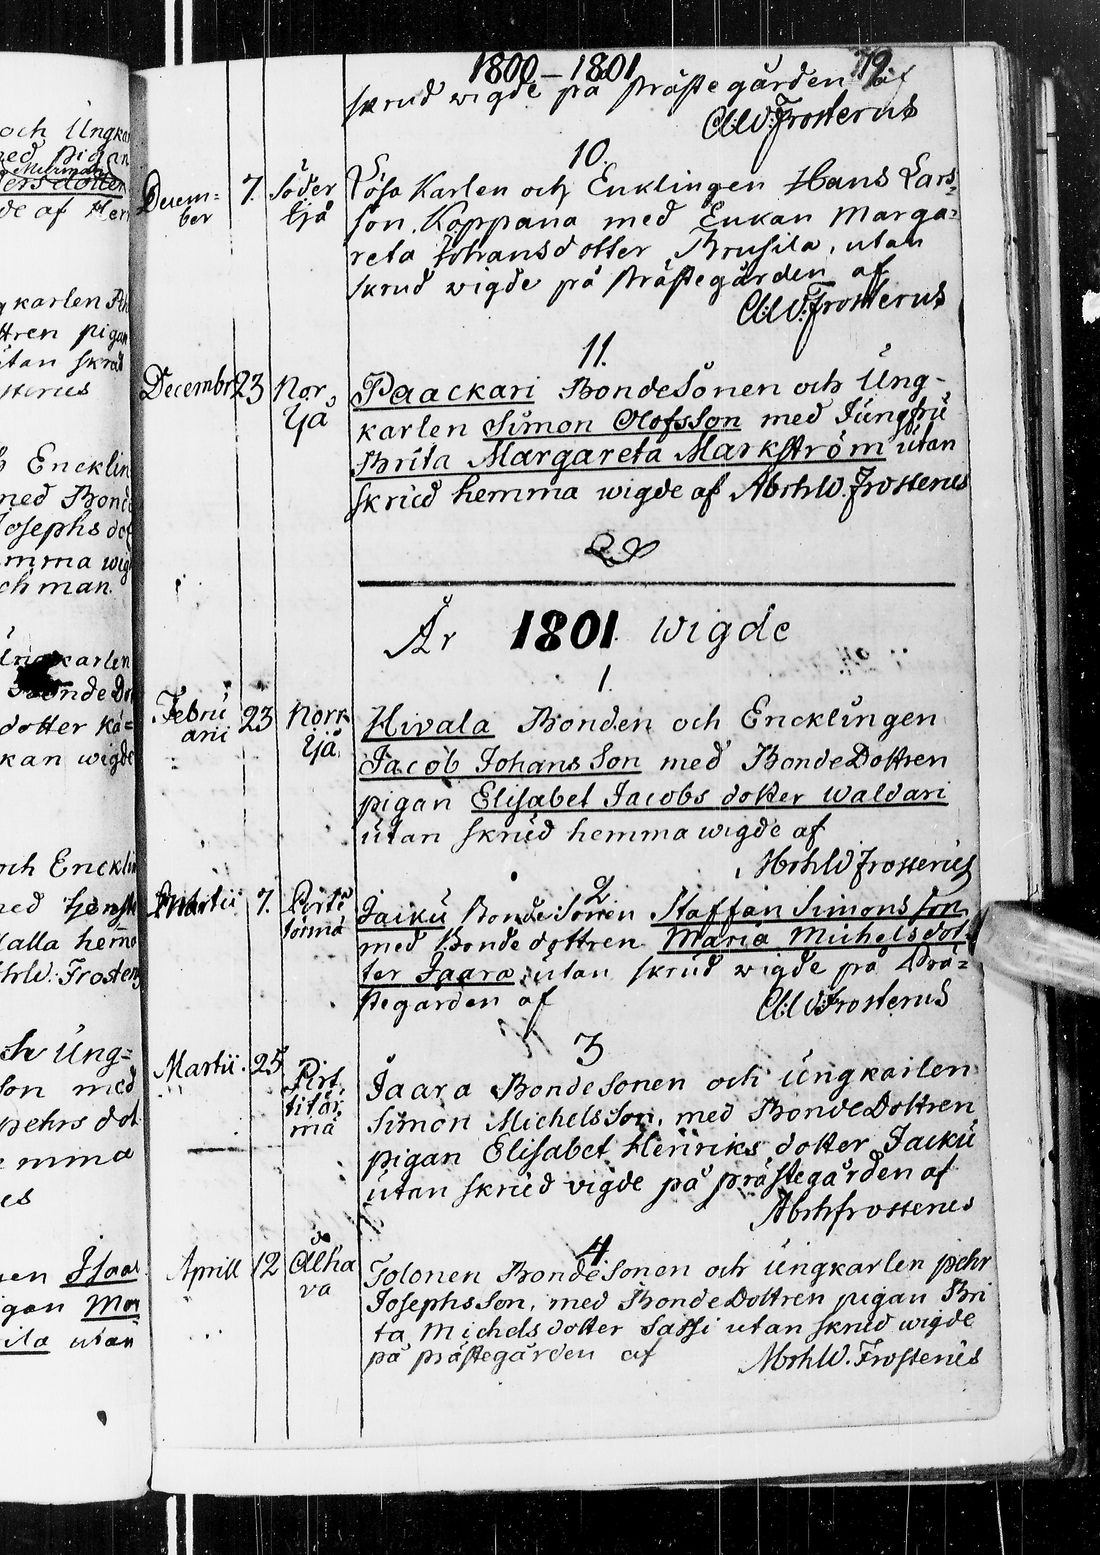 och Ungkar
med pigan
Mürman
Persdotter
de af Hen
gkarlen
ttren pigan
utan skrud
sterus
Encklin
med Bond
Josephs dot
mma wig
ch man.
Ungkarlen
Bonde Do
dotter Ka=
kan wigde
och Encklin
ned
alla hem
hrW. Frosten
ch Ung=
son med
pehrs dot
emma
es
en Isaac
igan Mar
ila utan
1800–1801 79.
skrud wigde på Prästegården af
A:W:Frosterus
10.
Decem= 7. Söder Lösa Karlen och Enklingen Hans Lars=
ber Ijå son Koppana med Enkan Marga=
reta Johansdotter Brusila, utan
skrud wigde på Prästegården af
A:W:Frosterus
11.
Decembr 23 Nor Paackari BondeSonen och Ung-
Ijå karlen Simon Olofsson med Jungfru
Brita Margareta Markström utan
skrud hemma wigde af AbrhW.Frosterus
År 1801 wigde
1.
Febru 23 Norr Hivala Bonden och Encklingen
arii Ijå Jacob JohansSon med BondeDottren
pigan Elisabet Jacobs dotter Waldari
utan skrud hemma wigde af
AbrhWFrosterus
2
Martii 7. Jaiku BondeSonen Staffan Simons son
med Bonde dottren Maria Michelsdot=
ter Jaara, utan skrud wigde på Prä=
stegården af A:W:Frosterus
3
Martii. 25 Pirt Jaara BondeSonen och Ungkarlen
titör Simon MichelsSon, med BondeDottren
mä pigan Elisabet Henriks dotter Jaiku
utan skrud vigde på prästegården af
Abrhfrosterus
4
Aprill 12 Alha Tolonen BondeSonen och Ungkarlen pehr
va JosephsSon, med BondeDottren pigan Bri
ta Michels dotter Sassi utan skrud wigde
på prästegården af AbrhW.Frosterus